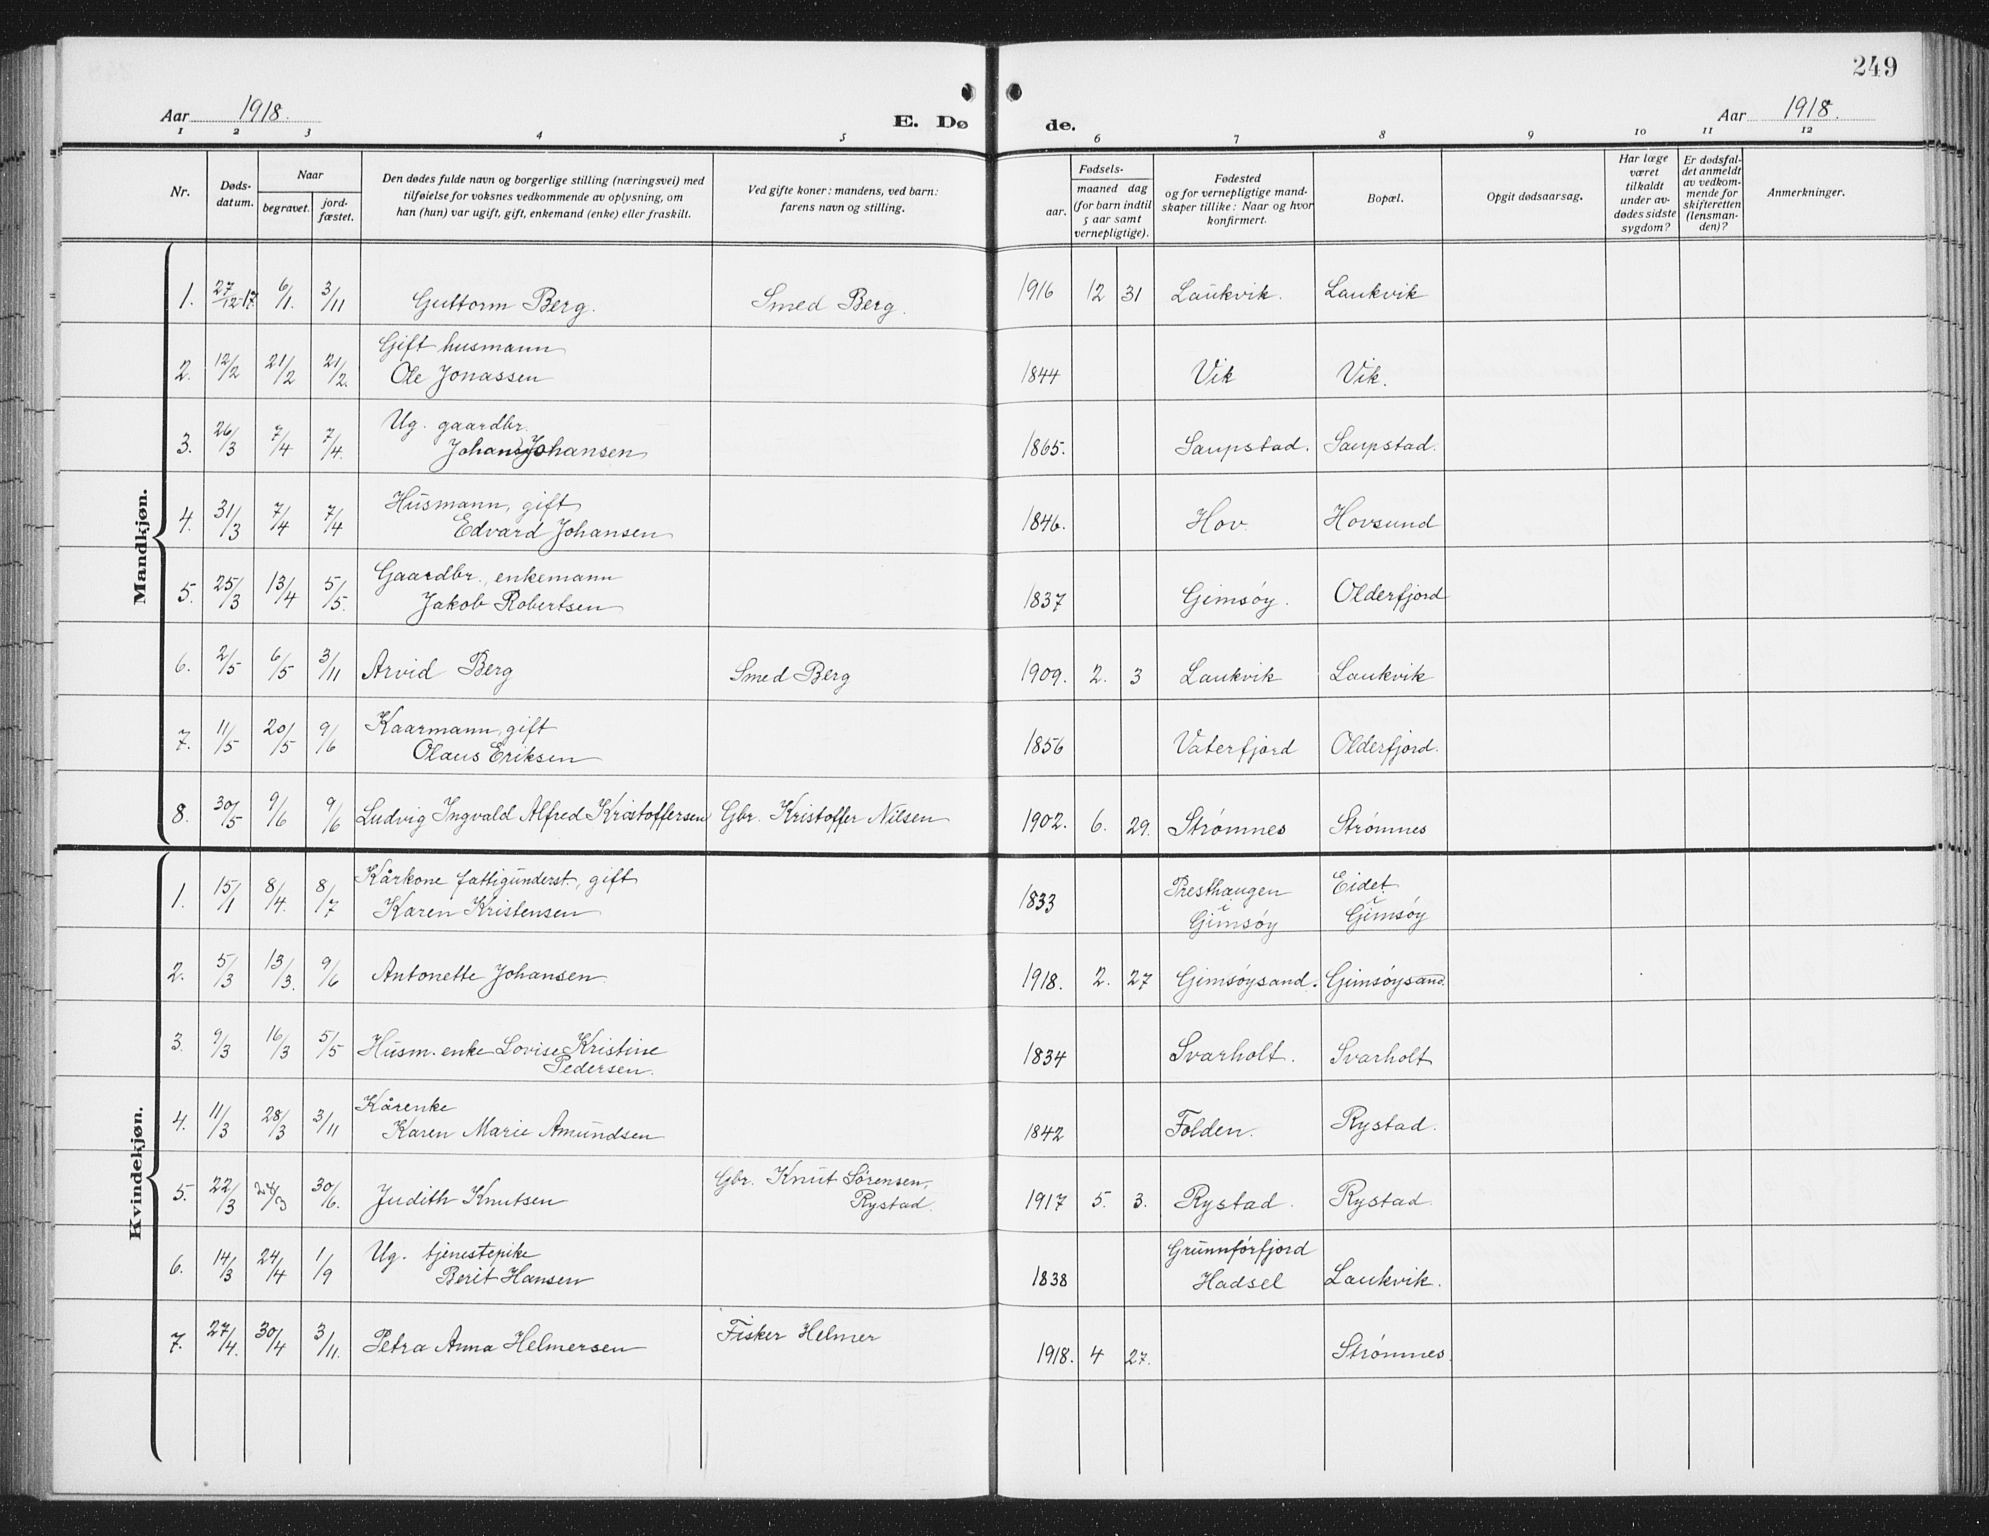 249
Aar 1918. E. Dø de. Aar 1918.
1 2 3 4 5 6 7 8 9 10 11 12
Nr.
Døds-
datum.
Naar
begravet.
jord-
fæstet.
Den dødes fulde navn og borgerlige stilling (næringsvei) med
tilføielse for voksnes vedkommende av oplysning, om
han (hun) var ugift, gift, enkemand (enke) eller fraskilt.
Ved gifte koner: mandens, ved barn:
farens navn og stilling.
Fødsels-
aar.
maaned dag
(for barn indtil
5 aar samt
vernepligtige).
Fødested
og for vernepligtige mand-
skaper tillike: Naar og hvor
konfirmert.
Bopæl.
Opgit dødsaarsag.
Har læge
været
tilkaldt
under av-
dødes sidste
sygdom?
Er dødsfal-
det anmeldt
av vedkom-
mende for
skifteretten
(lensman-
den)?
Anmerkninger.
Mandkjøn.
1. 27/12-17. 6/1. 3/11 Guttorm Berg. Smed Berg. 1916 12 31 Laukvik. Laukvik
Gift husmann
2. 12/2 21/2 21/2. Ole Jonassen 1844 Vik Vik.
Ug. gaardbr.
3. 26/3 7/4 7/4. Johans Johansen 1865. Saupstad. Saupstad.
Husmann, gift
4. 31/3 7/4 7/4 Edvard Johansen 1846. Hov Hovsund
Gaardbr., enkemann
5. 25/3 13/4 5/5. Jakob Robertsen 1837 Gimsøy. Olderfjord
6. 2/5 6/5 3/11 Arvid Berg Smed Berg 1909. 2. 3 Laukvik Laukvik
Kaarmann, gift
7. 11/5 20/5 9/6 Olaus Eriksen 1856 Vaterfjord Olderfjord.
8. 30/5 9/6 9/6 Ludvig Ingvald Alfred Kristoffersen Gbr. Kristoffer Nilsen 1902. 6. 29. Strømnes Strømnes
Kvindekjøn.
Kårkone fattigunderst., gift Presthaugen Eidet
1. 15/1 8/4. 8/7 Karen Kristensen 1833 i Gimsøy i Gimsøy
2. 5/3 13/3. 9/6 Antonette Johansen 1918. 2. 27 Gimsøysand. Gimsøysand.
3. 9/3 16/3 5/5 Husm. enke Lovise Kristine 1834 Svarholt. Svarholt
Pedersen.
Kårenke
4. 11/3 28/3 3/11 Karen Marie Amundsen 1842 Folden. Rystad.
Gbr. Knut Sørensen,
5. 22/3 24/3 30/6. Judith Knutsen Rystad. 1917 5. 3. Rystad. Rystad.
Ug. tjenestepike Grunnførfjord
6. 14/3 24/4 1/9 Berit Hansen 1838 Hadsel Laukvik.
7. 27/4. 30/4 3/11. Petra Anna Helmersen Fisker Helmer 1918. 4 27. Strømnes.